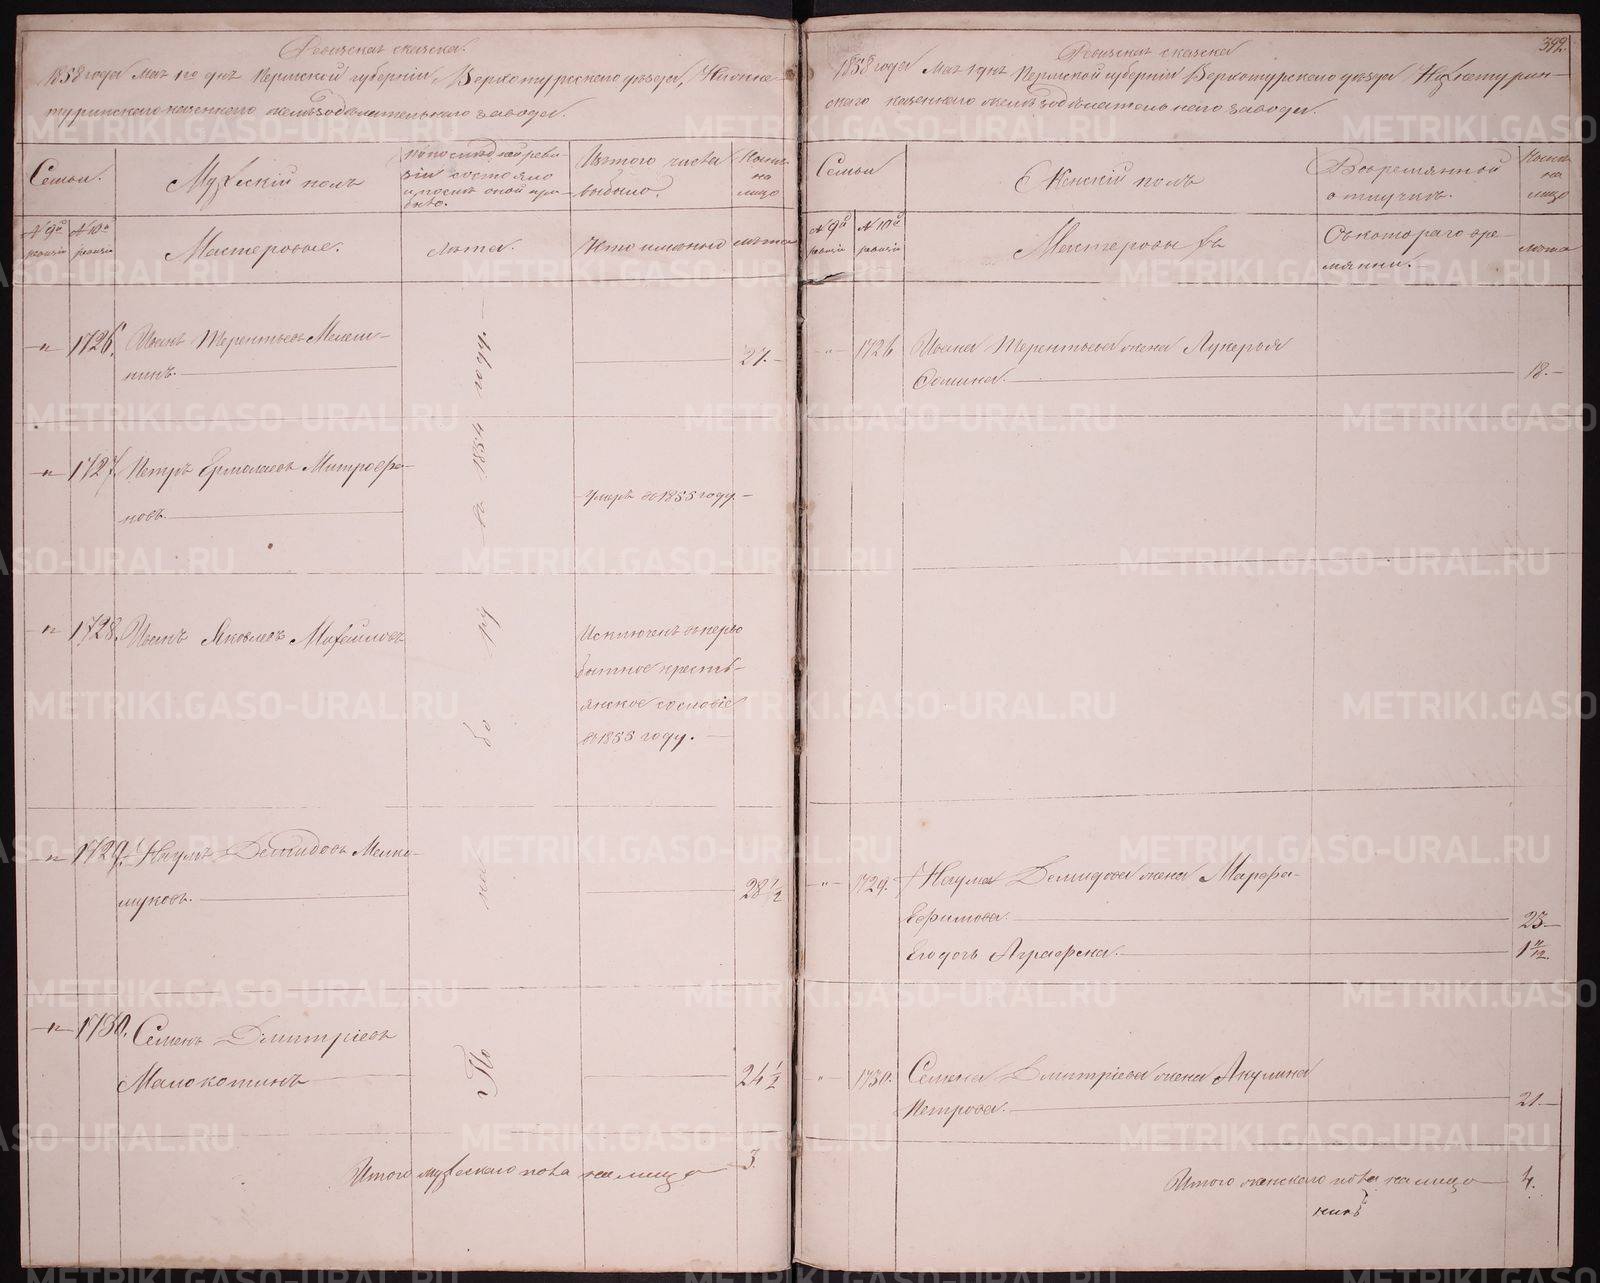 Ревизская сказка.
1858 года Мая 1го дня Пермской губернии, Верхотурского уезда, Нижне-
туринского казеннаго железоделательнаго завода.
Семьи.
Мужескій полъ
По последней реви-
зіи состояло
и после оной при-
было.
Изъ того числа
выбыло
Ныне
на
лицо
№ 9й
ревизіи
№ 10й
ревизіи
Мастеровые.
лета.
Кто именно
лета
"
1726.
Иванъ Терентьевъ
нинъ.
27.
"
1727.
Петръ Ермолаевъ Митрофа-
новъ.
Умеръ въ 1855 году.
"
1728.
Иванъ Яковлевъ Михайловъ
Исключенъ въ перво
бытное кресть-
янское сословіе
въ 1855 году.
"
1729.
Наумъ Демидовъ Мелко-
муковъ.
28 1/2
"
1730.
Семенъ Дмитріевъ
Малокотинъ
24 1/2
Итого мужескаго пола на лицо
3.
392.
Ревизская сказка
1858 года Мая 1 дня Пермской губерніи Верхотурскаго уезда Нижнетурин-
скаго казеннаго железоделательнаго завода.
Семьи
Женскій полъ
Во временной
отлучке.
Ныне
на
лицо
№ 9й
ревизіи
№ 10й
ревизіи
Мастеровы
Съ котораго вре-
мяни.
лета
"
1726
Ивана Терентьева жена Лукерья
Сомина.
18.
"
1729.
Наума Демидова жена Марфа
Ефимова.
23
Егодочь Аграфена.
1 11/12.
"
1730.
Семена Дмитріева жена Акулина
Петрова.
21.
Итого женскаго пола на лицо
4.
METRIKI.GASO-URAL.RU